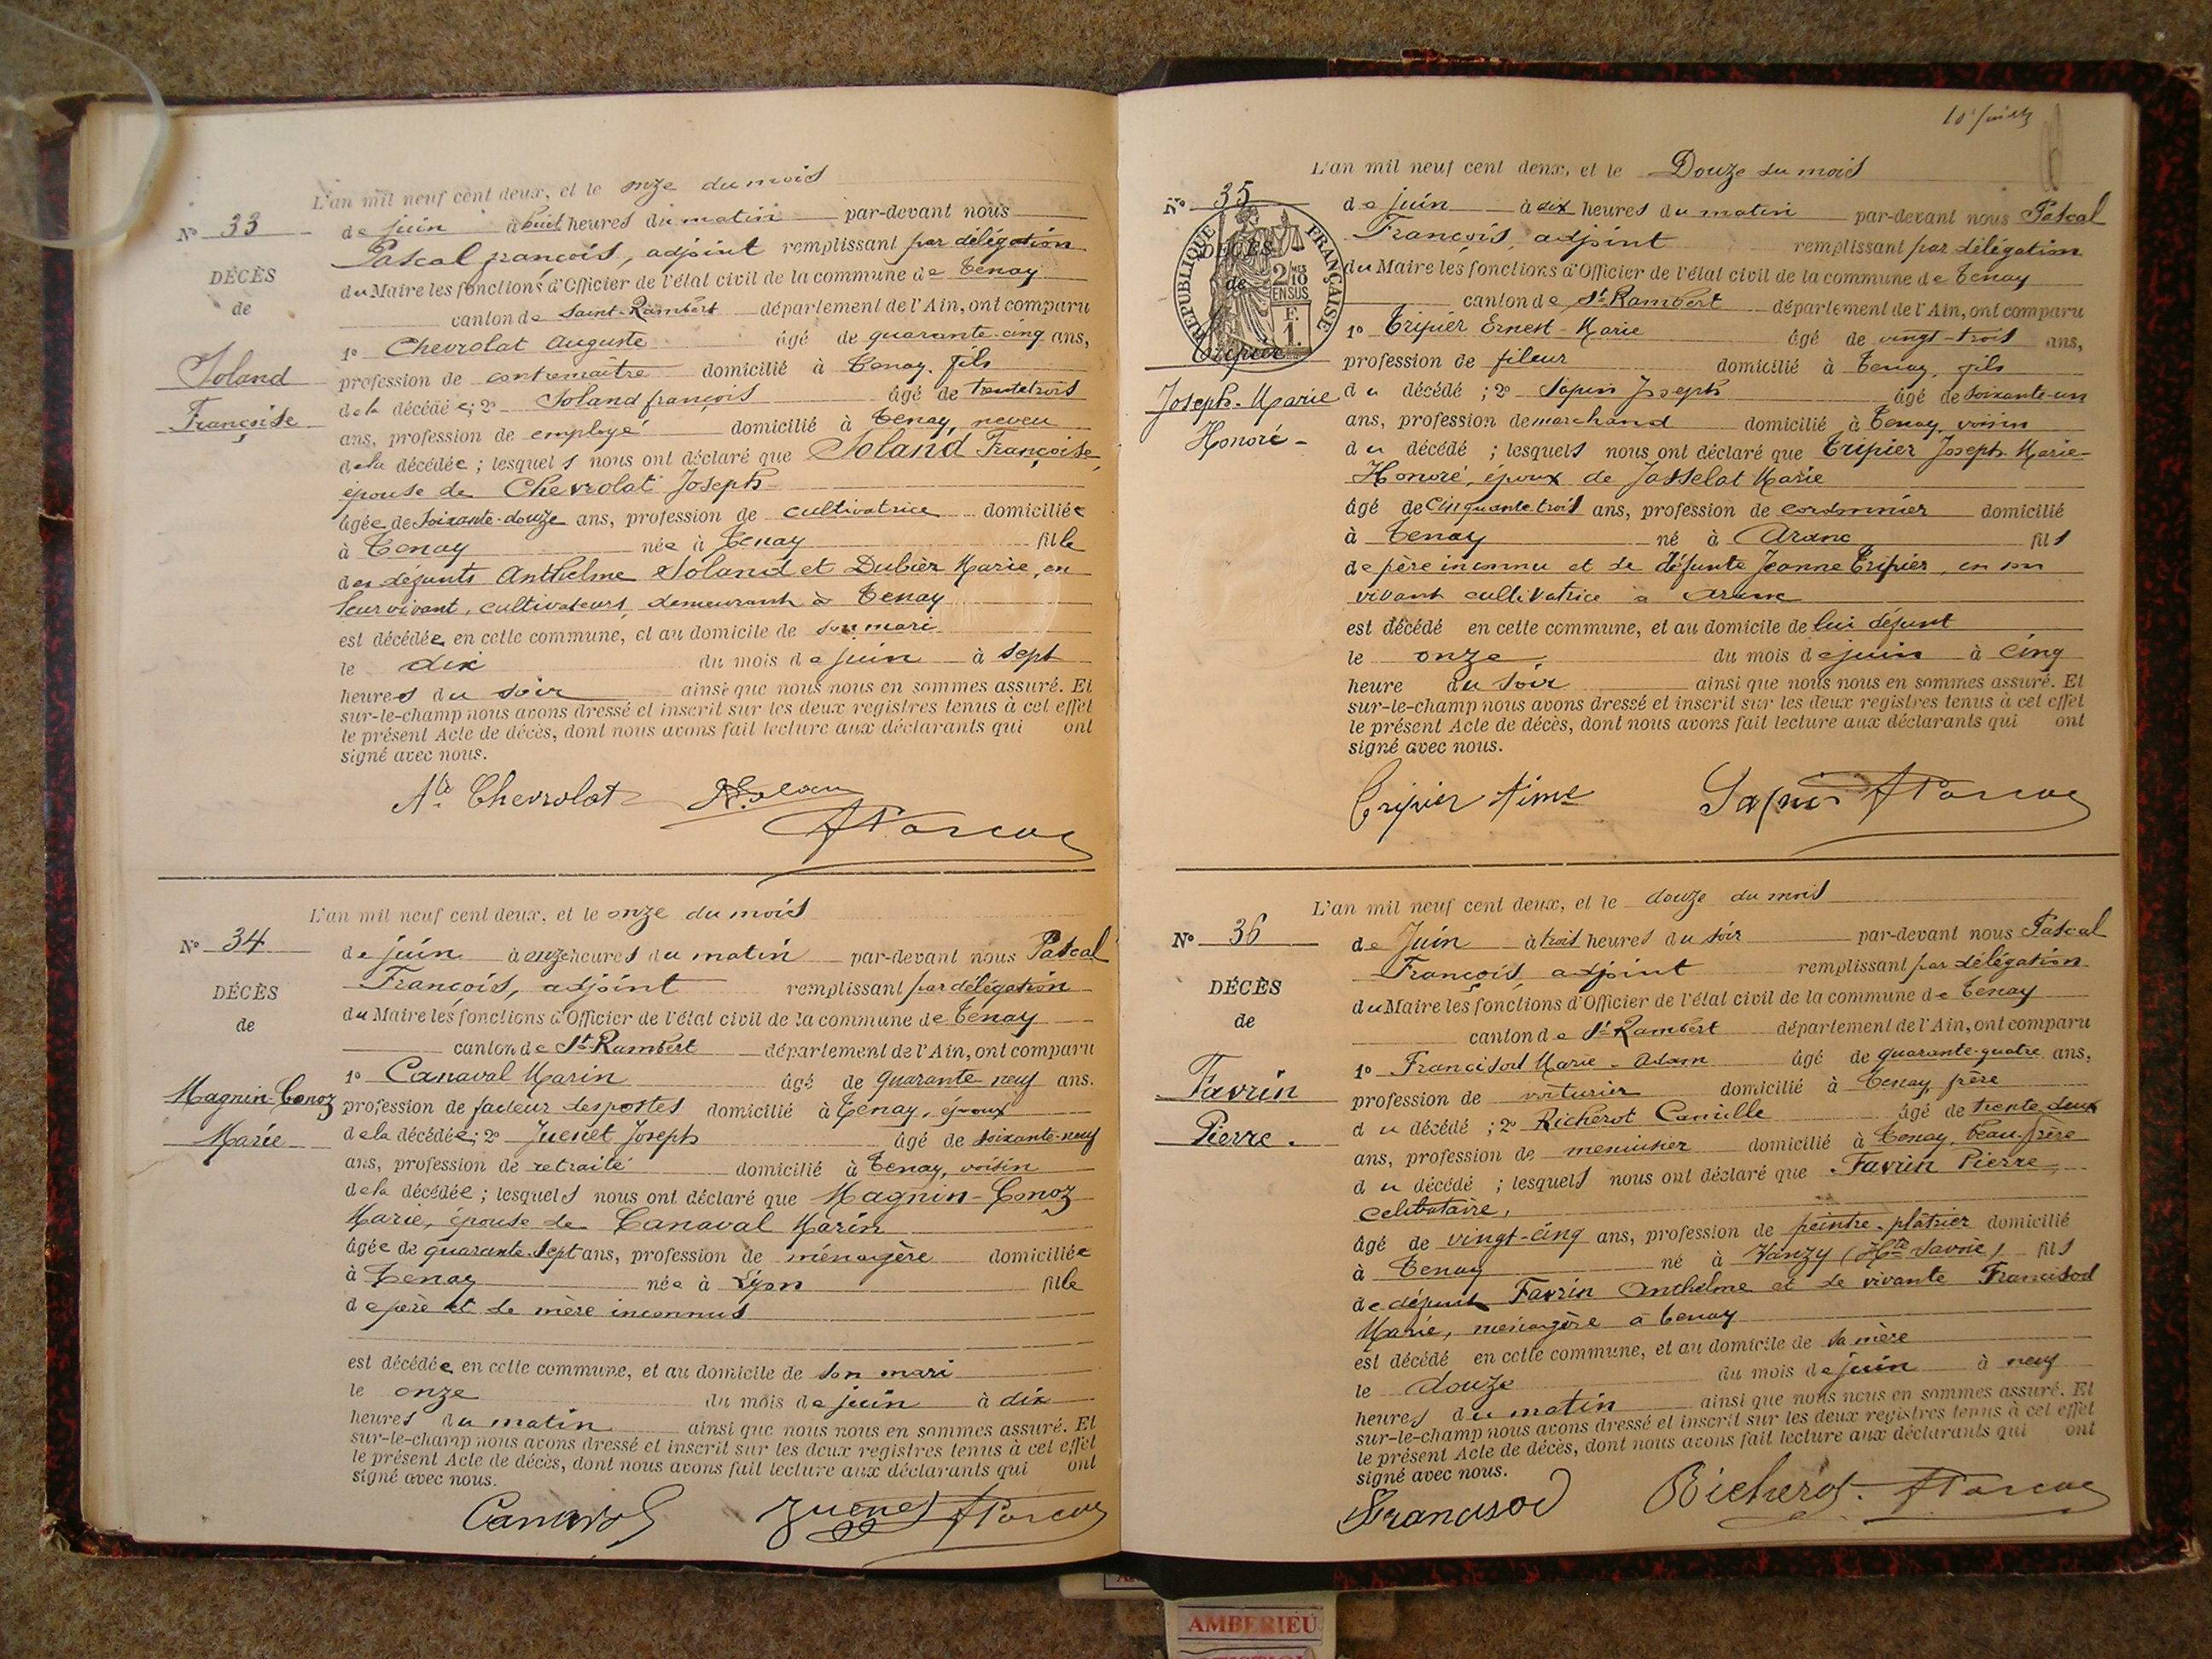 L'an mil neuf cent deux, et le onze du mois
N° 33
de juin à huit heures du matin par-devant nous
Pascal françois, adjoint remplissant par délégation
DÉCÈS
du Maire les fonctions d'Officier de l'état civil de la commune de Tenay
de
canton de Saint-Rambert département de l'Ain, ont comparu
1° Chevrolat Auguste âgé de quarante-cinq ans,
Soland
profession de contremaître domicilié à Tenay, fils
Françoise
de la décédée; 2° Soland françois âgé de trente trois
ans, profession de employé domicilié à Tenay, neveu
de la décédée; lesquels nous ont déclaré que Soland Françoise,
épouse de Chevrolat Joseph
âgée de soixante-douze ans, profession de cultivatrice domiciliée
à Tenay née à Tenay fille
des défunts Anthelme Soland et Dubier Marie, en
leur vivant, cultivateurs, demeurant à Tenay
est décédée en cette commune, et au domicile de son mari
le dix du mois de juin à sept
heures du soir ainsi que nous nous en sommes assuré. Et
sur-le-champ nous avons dressé et inscrit sur les deux registres tenus à cet effet
le présent Acte de décès, dont nous avons fait lecture aux déclarants qui ont
signé avec nous.
Chevrolat
L'an mil neuf cent deux, et le onze du mois
N° 34
de juin à onze heures du matin par-devant nous Pascal
François, adjoint remplissant par délégation
DÉCÈS
du Maire les fonctions d'Officier de l'état civil de la commune de Tenay
de
canton de St-Rambert département de l'Ain, ont comparu
1° Canaval Marin âgé de quarante neuf ans.
Magnin-Conoz
profession de facteur des postes domicilié à Tenay, époux
Marie
de la décédée; 2° Juenet Joseph âgé de soixante-neuf
ans, profession de retraité domicilié à Tenay, voisin
de la décédée; lesquels nous ont déclaré que Magnin-Conoz
Marie, épouse de Canaval Marin
âgée de quarante-sept ans, profession de ménagère domiciliée
à Tenay née à Lyon fille
de père et de mère inconnus
est décédée en cette commune, et au domicile de son mari
le onze du mois de juin à dix
heures du matin ainsi que nous nous en sommes assuré. Et
sur-le-champ nous avons dressé et inscrit sur les deux registres tenus à cet effet
le présent Acte de décès, dont nous avons fait lecture aux déclarants qui ont
signé avec nous.
Canaval Juenet FPascal
L'an mil neuf cent deux, et le Douze du mois
N° 35
de juin à dix heures du matin par-devant nous Pascal
François, adjoint remplissant par délégation
RÉPUBLIQUE FRANÇAISE
2/10 EN SUS
F. 1.
DÉCÈS
du Maire les fonctions d'Officier de l'état civil de la commune de Tenay
de
canton de St-Rambert département de l'Ain, ont comparu
1° Tripier Ernest-Marie âgé de vingt-trois ans,
Tripier
profession de fileur domicilié à Tenay, fils
Joseph-Marie
du décédé; 2° Sapin Joseph âgé de soixante-un
ans, profession de marchand domicilié à Tenay, voisin
Honoré
du décédé; lesquels nous ont déclaré que Tripier Joseph-Marie-
Honoré, époux de Josselat Marie
âgé de Cinquante trois ans, profession de cordonnier domicilié
à Tenay né à Aranc fils
de père inconnu et de défunte Jeanne Tripier, en son
vivant cultivatrice à Aranc
est décédé en cette commune, et au domicile de lui défunt
le onze du mois de juin à cinq
heure du soir ainsi que nous nous en sommes assuré. Et
sur-le-champ nous avons dressé et inscrit sur les deux registres tenus à cet effet
le présent Acte de décès, dont nous avons fait lecture aux déclarants qui ont
signé avec nous.
Tripier Sapin FPascal
L'an mil neuf cent deux, et le douze du mois
N° 36
de Juin à trois heures du soir par-devant nous Pascal
François, adjoint remplissant par délégation
DÉCÈS
du Maire les fonctions d'Officier de l'état civil de la commune de Tenay
de
canton de St-Rambert département de l'Ain, ont comparu
1° Francisod Marie-Adam âgé de quarante-quatre ans,
Favrin
profession de voiturier domicilié à Tenay, père
Pierre.
du décédé; 2° Richerot Camille âgé de trente deux
ans, profession de menuisier domicilié à Tenay, beau-frère
du décédé; lesquels nous ont déclaré que Favrin Pierre,
célibataire,
âgé de vingt-cinq ans, profession de peintre-plâtrier domicilié
à Tenay né à Vanzy (Hte Savoie) fils
de défunt Favrin Anthelme et de vivante Francisod
Marie, ménagère à Tenay
est décédé en cette commune, et au domicile de sa mère
le douze du mois de juin à neuf
heures du matin ainsi que nous nous en sommes assuré. Et
sur-le-champ nous avons dressé et inscrit sur les deux registres tenus à cet effet
le présent Acte de décès, dont nous avons fait lecture aux déclarants qui ont
signé avec nous.
Francisod Richerot. FPascal
AMBERIEU